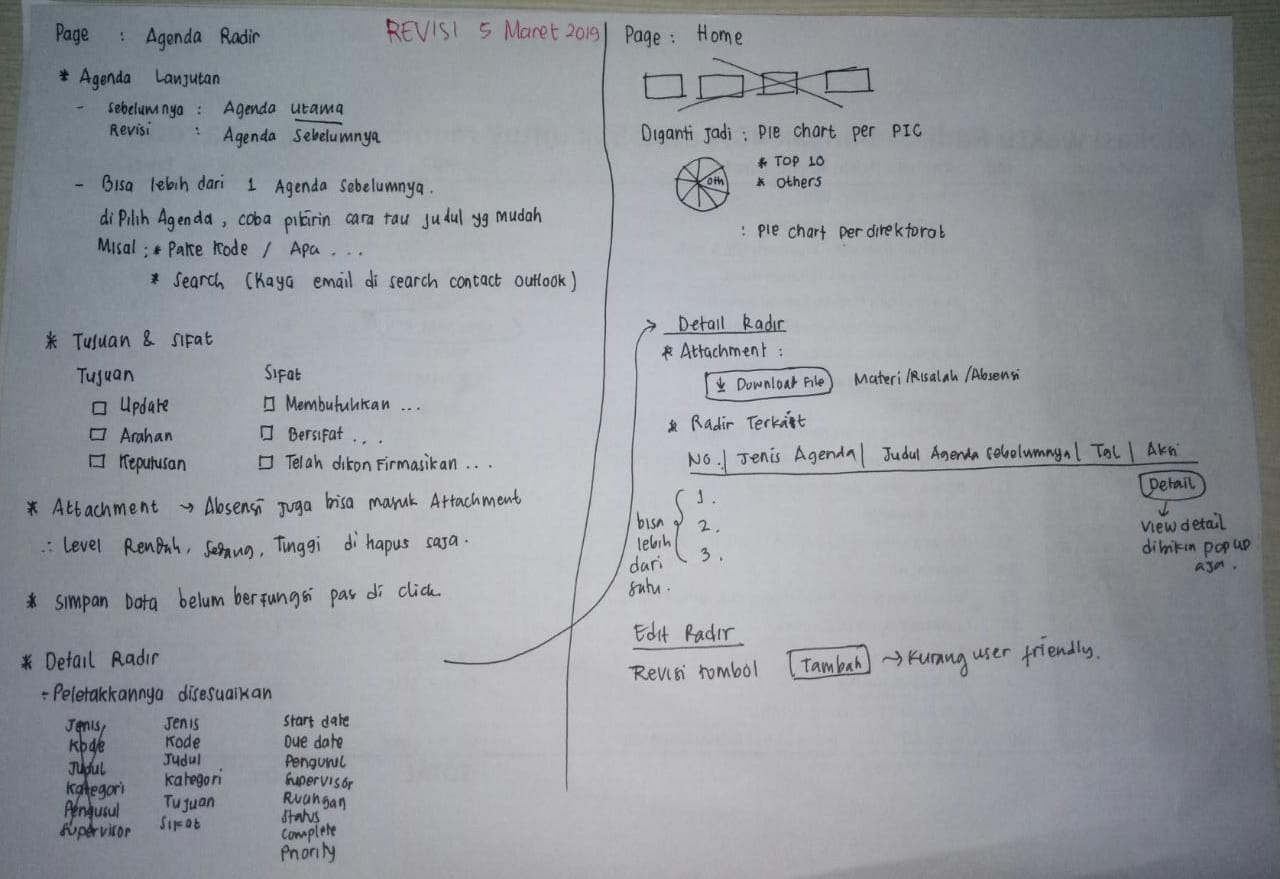 Page : Agenda Radir
REVISI 5 Maret 2019
* Agenda Lanjutan
- Sebelumnya : Agenda Utama
Revisi : Agenda Sebelumnya
- Bisa lebih dari 1 Agenda Sebelumnya.
di Pilih Agenda, coba pikirin cara tau judul yg mudah
Misal : * Pake Kode / Apa ...
* Search (Kaya email di search contact outlook)
* Tujuan & Sifat
Tujuan Sifat
Update Membutuhkan ...
Arahan Bersifat ...
Keputusan Telah dikonfirmasikan ...
* Attachment → Absensi juga bisa masuk Attachment
∴ Level Rendah, Sedang, Tinggi di hapus saja.
* Simpan Data belum berfungsi pas di click.
* Detail Radir
- Peletakkannya disesuaikan
Jenis Jenis Start date
Kode Kode Due date
Judul Judul Pengusul
Kategori Kategori Supervisor
Pengusul Tujuan Ruangan
Supervisor Sifat Status
Complete
Priority
Page : Home
Diganti jadi : Pie chart per PIC
oth
* TOP 10
* others
: Pie chart per direktorat
→ Detail Radir
* Attachment :
Download File Materi/Risalah/Absensi
* Radir Terkait
No. | Jenis Agenda | Judul Agenda sebelumnya | Tgl | Aksi
Detail
View detail
dibikin pop up
aja.
1.
2.
3.
bisa
lebih
dari
satu.
Edit Radir
Revisi tombol Tambah → Kurang user friendly.